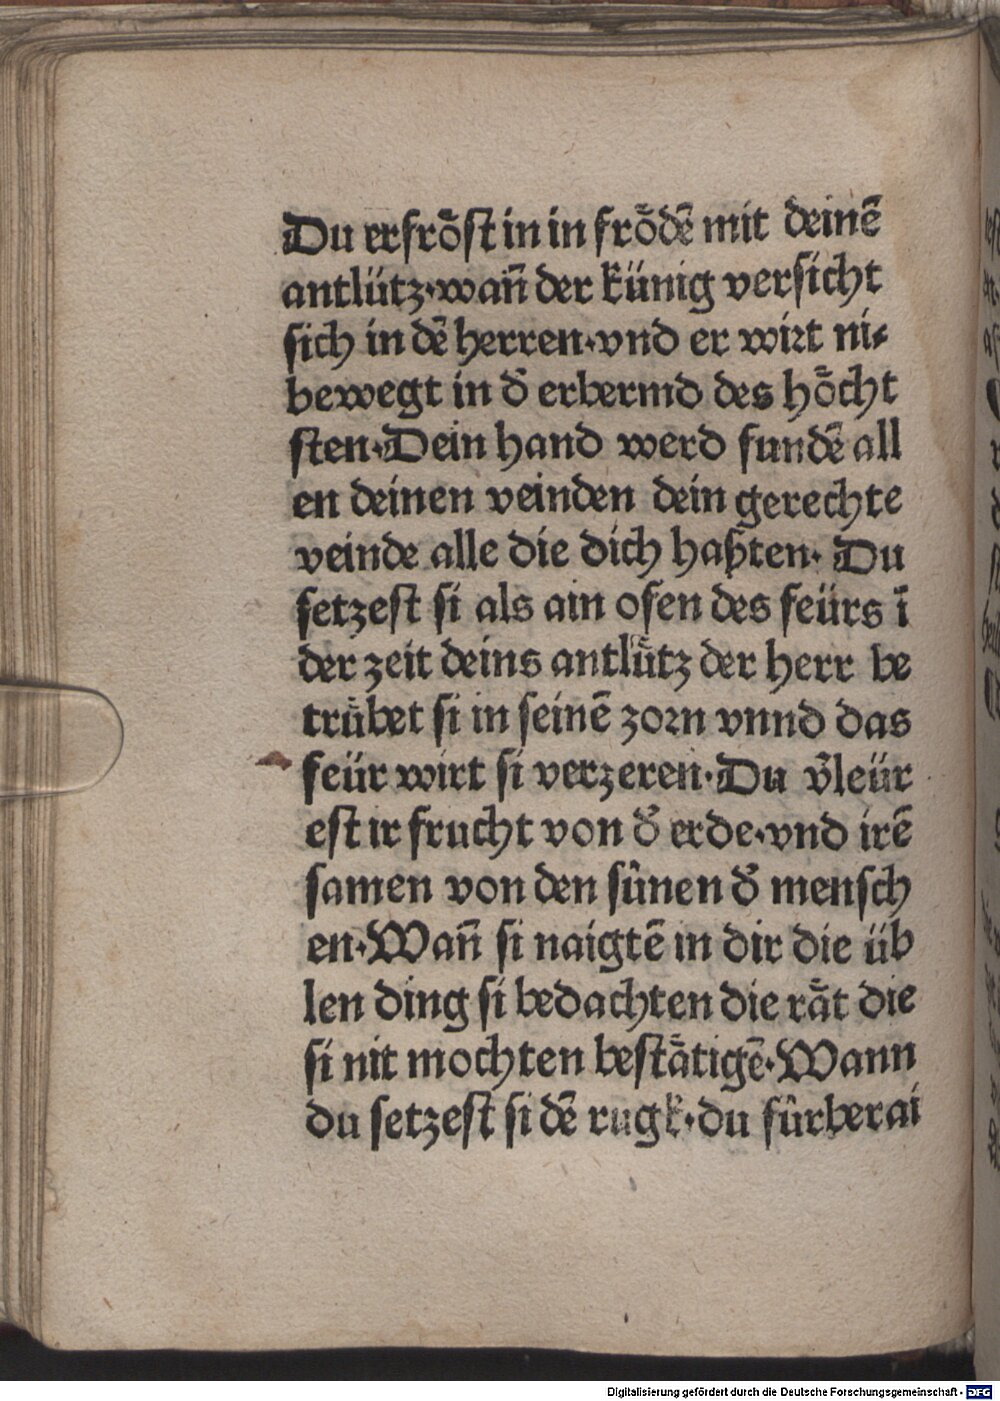 Du erfrȍst in in frȍdē mit deinē
antlütz·wañ der künig versicht
sich in dē herren·vnd er wirt ni⸗
bewegt in d̕ erbermd des hȍcht
sten·Dein hand werd fundē all
en deinen veinden dein gerechte
veinde alle die dich haßten· Du
setzest si als ain ofen des feürs ī
der zeit deins antlütz der herr be
trübet si in seinē zorn vnnd das
feür wirt si verzeren·Du v̕leür
est ir frucht von d̕ erde·vnd irē
samen von den sûnen d̕ mensch
en·Wañ si naigtē in dir die üb
len ding si bedachten die rät die
si nit mochten bestätigē·Wann
du setzest si dē rugk·du fûrberai
Digitalisierung gefördert durch die Deutsche Forschungsgemeinschaft - DFG